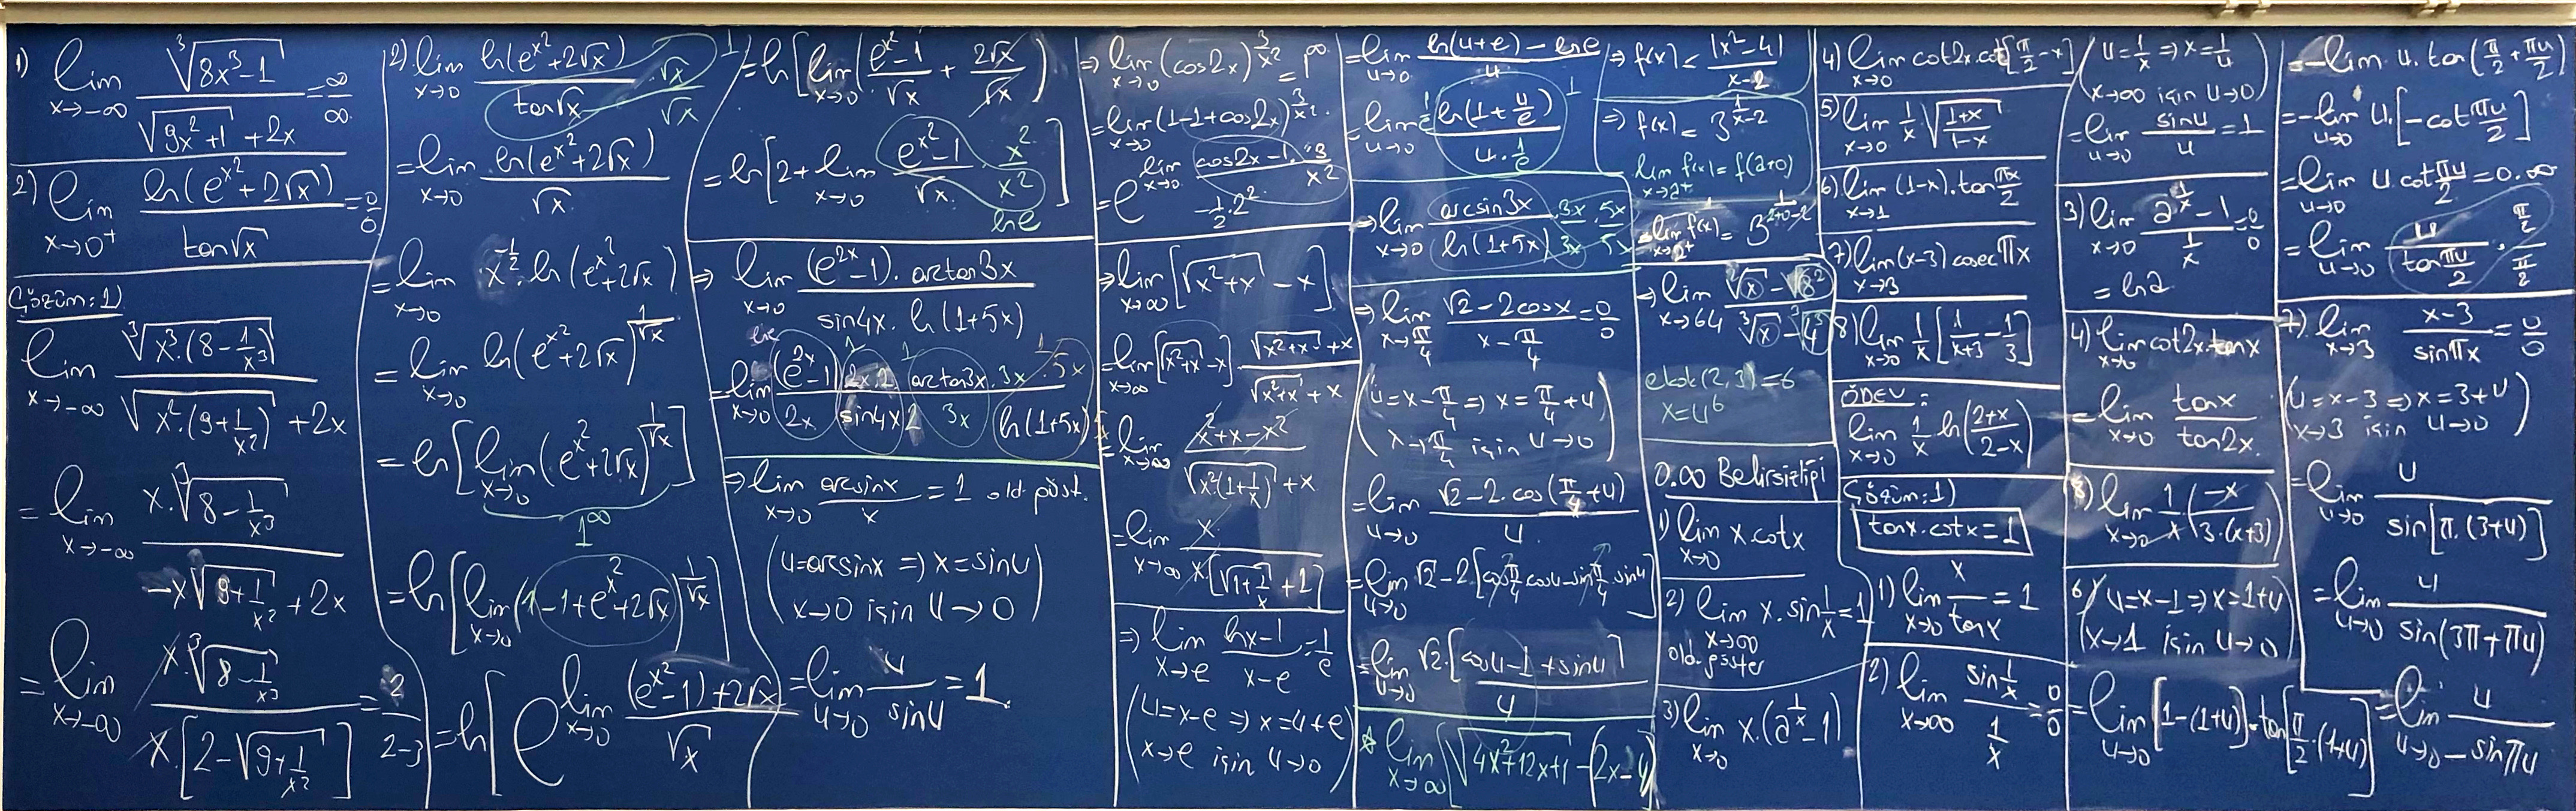 1) lim x→-∞ ∛(8x³-1) / (√(9x²+1) + 2x) = ∞/∞
2) lim x→0⁺ ln(e^(x²)+2√x) / tan√x = 0/0
Çözüm: 1)
lim x→-∞ ∛(x³.(8-1/x³)) / (√(x².(9+1/x²)) + 2x)
= lim x→-∞ x.∛(8-1/x³) / (-x√(9+1/x²) + 2x)
= lim x→-∞ x.∛(8-1/x³) / (x.[2-√(9+1/x²)]) = 2/(2-3)
2) lim x→0 ln(e^(x²)+2√x) / tan√x . √x/√x 1
= lim x→0 ln(e^(x²)+2√x) / √x
= lim x→0 x^(-1/2).ln(e^(x²)+2√x)
= lim x→0 ln(e^(x²)+2√x)^(1/√x)
= ln[lim x→0 (e^(x²)+2√x)^(1/√x)]
1^∞
= ln[lim x→0 (1-1+e^(x²)+2√x)^(1/√x)]
= ln[e^(lim x→0 ((e^(x²)-1)+2√x)/√x)
= ln[lim x→0 ((e^(x²)-1)/√x + 2√x/√x)
= ln[2+lim x→0 (e^(x²)-1)/√x . x²/x²]
lne
⇒ lim x→0 (e^(2x)-1).arctan3x / (sin4x.ln(1+5x))
lne
= lim x→0 (e^(2x)-1)/2x . 2x.2/sin4x.2 . arctan3x.3x/3x . 5x/ln(1+5x).5x 1 1 1
⇒ lim x→0 arcsinx/x = 1 old. göst.
(u=arcsinx ⇒ x=sinu
x→0 için u→0)
= lim u→0 u/sinu = 1.
⇒ lim x→0 (cos2x)^(3/x²) = 1^∞
= lim x→0 (1-1+cos2x)^(3/x²)
= e^(lim x→0 (cos2x-1).3/x²)
-1/2.2²
⇒ lim x→∞ [√(x²+x) - x]
= lim x→∞ [√(x²+x) - x] . (√(x²+x)+x)/(√(x²+x)+x)
= lim x→∞ (x²+x-x²)/(√(x²(1+1/x))+x)
= lim x→∞ x/(x.[√(1+1/x)+1])
⇒ lim x→e (lnx-1)/(x-e) = 1/e
(u=x-e ⇒ x=u+e
x→e için u→0)
= lim u→0 (ln(u+e)-lne)/u
= lim u→0 1/e ln(1+u/e)/(u.1/e) 1
⇒ lim x→0 arcsin3x/ln(1+5x) . 3x/3x . 5x/5x
⇒ lim x→π/4 (√2-2cosx)/(x-π/4) = 0/0
(u=x-π/4 ⇒ x=π/4+u
x→π/4 için u→0)
= lim u→0 (√2-2.cos(π/4+u))/u
= lim u→0 √2-2[cosπ/4 cosu-sinπ/4.sinu]
= lim u→0 √2.[cosu-1+sinu]/u
☆ lim x→∞ [√(4x²+12x+1) - (2x-4)]
⇒ f(x) = |x²-4|/(x-2)
⇒ f(x) = 3^(1/(x-2))
lim x→2⁺ f(x) = f(2+0)
= lim x→2⁺ f(x) = 3^(1/(2+0-2))
⇒ lim x→64 (√x-√8²)/(∛x-∛4³)
ekok(2,3)=6
x=u⁶
0.∞ Belirsizliği
1) lim x→0 x.cotx
2) lim x→∞ x.sin1/x = 1
old. göster
3) lim x→0 x.(2^(1/x)-1)
4) lim x→0 cot2x.cot[π/2-x]
5) lim x→0 1/x √((1+x)/(1-x))
6) lim x→1 (1-x).tan πx/2
7) lim x→3 (x-3)cosecπx
8) lim x→0 1/x [1/(x+3) - 1/3]
ÖDEV:
lim x→0 1/x ln((2+x)/(2-x))
Çözüm: 1)
tanx.cotx=1
1) lim x→0 x/tanx = 1
2) lim x→∞ sin1/x / 1/x = 0/0
(u=1/x ⇒ x=1/u
x→∞ için u→0)
= lim u→0 sinu/u = 1
3) lim x→0 (2^(1/x)-1)/(1/x) = 0/0
= ln2
4) lim x→0 cot2x.tanx
= lim x→0 tanx/tan2x.
8) lim x→0 1/x . (-x/(3.(x+3)))
6) (u=x-1 ⇒ x=1+u
x→1 için u→0)
= lim u→0 [1-(1+u)].tan[π/2.(1+u)]
= -lim u.tan(π/2+πu/2)
= -lim u→0 u.[-cot πu/2]
= lim u→0 u.cot πu/2 = 0.∞
= lim u→0 u/tan πu/2 . π/2 / π/2
7) lim x→3 (x-3)/sinπx = 0/0
(u=x-3 ⇒ x=3+u
x→3 için u→0)
= lim u→0 u/sin[π.(3+u)]
= lim u→0 u/sin(3π+πu)
= lim u→0 u/-sinπu